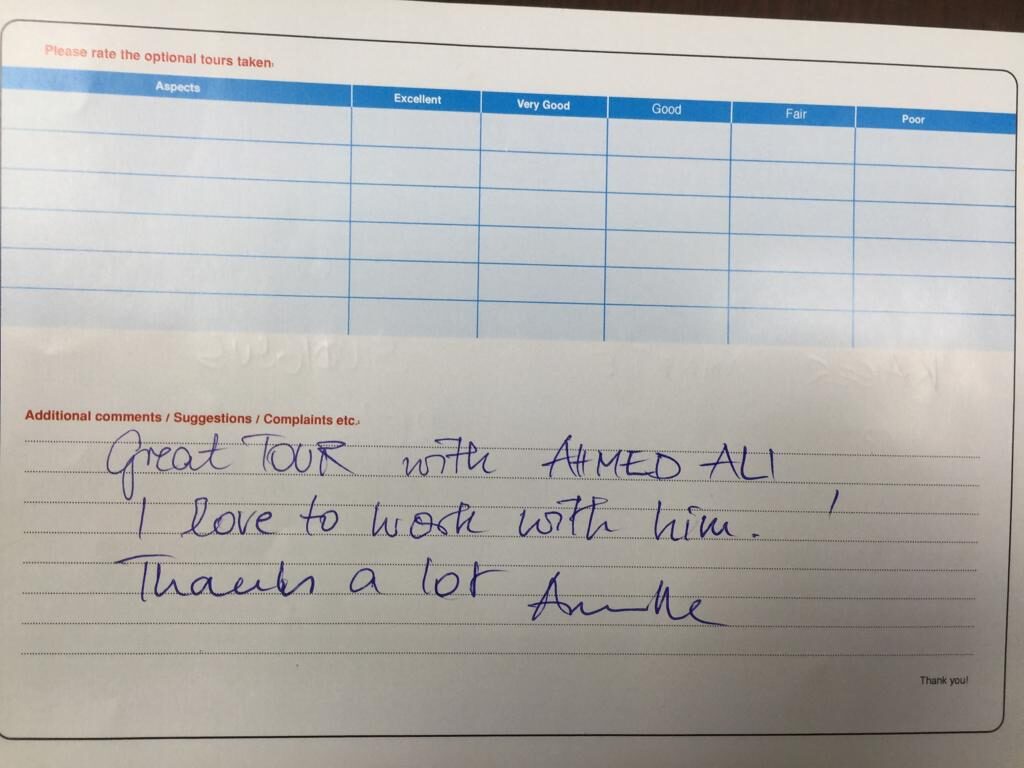 Please rate the optional tours taken:
Aspects Excellent Very Good Good Fair Poor
Additional comments / Suggestions / Complaints etc.:
Great TOUR with AHMED ALI
I love to work with him.
Thanks a lot
Thank you!